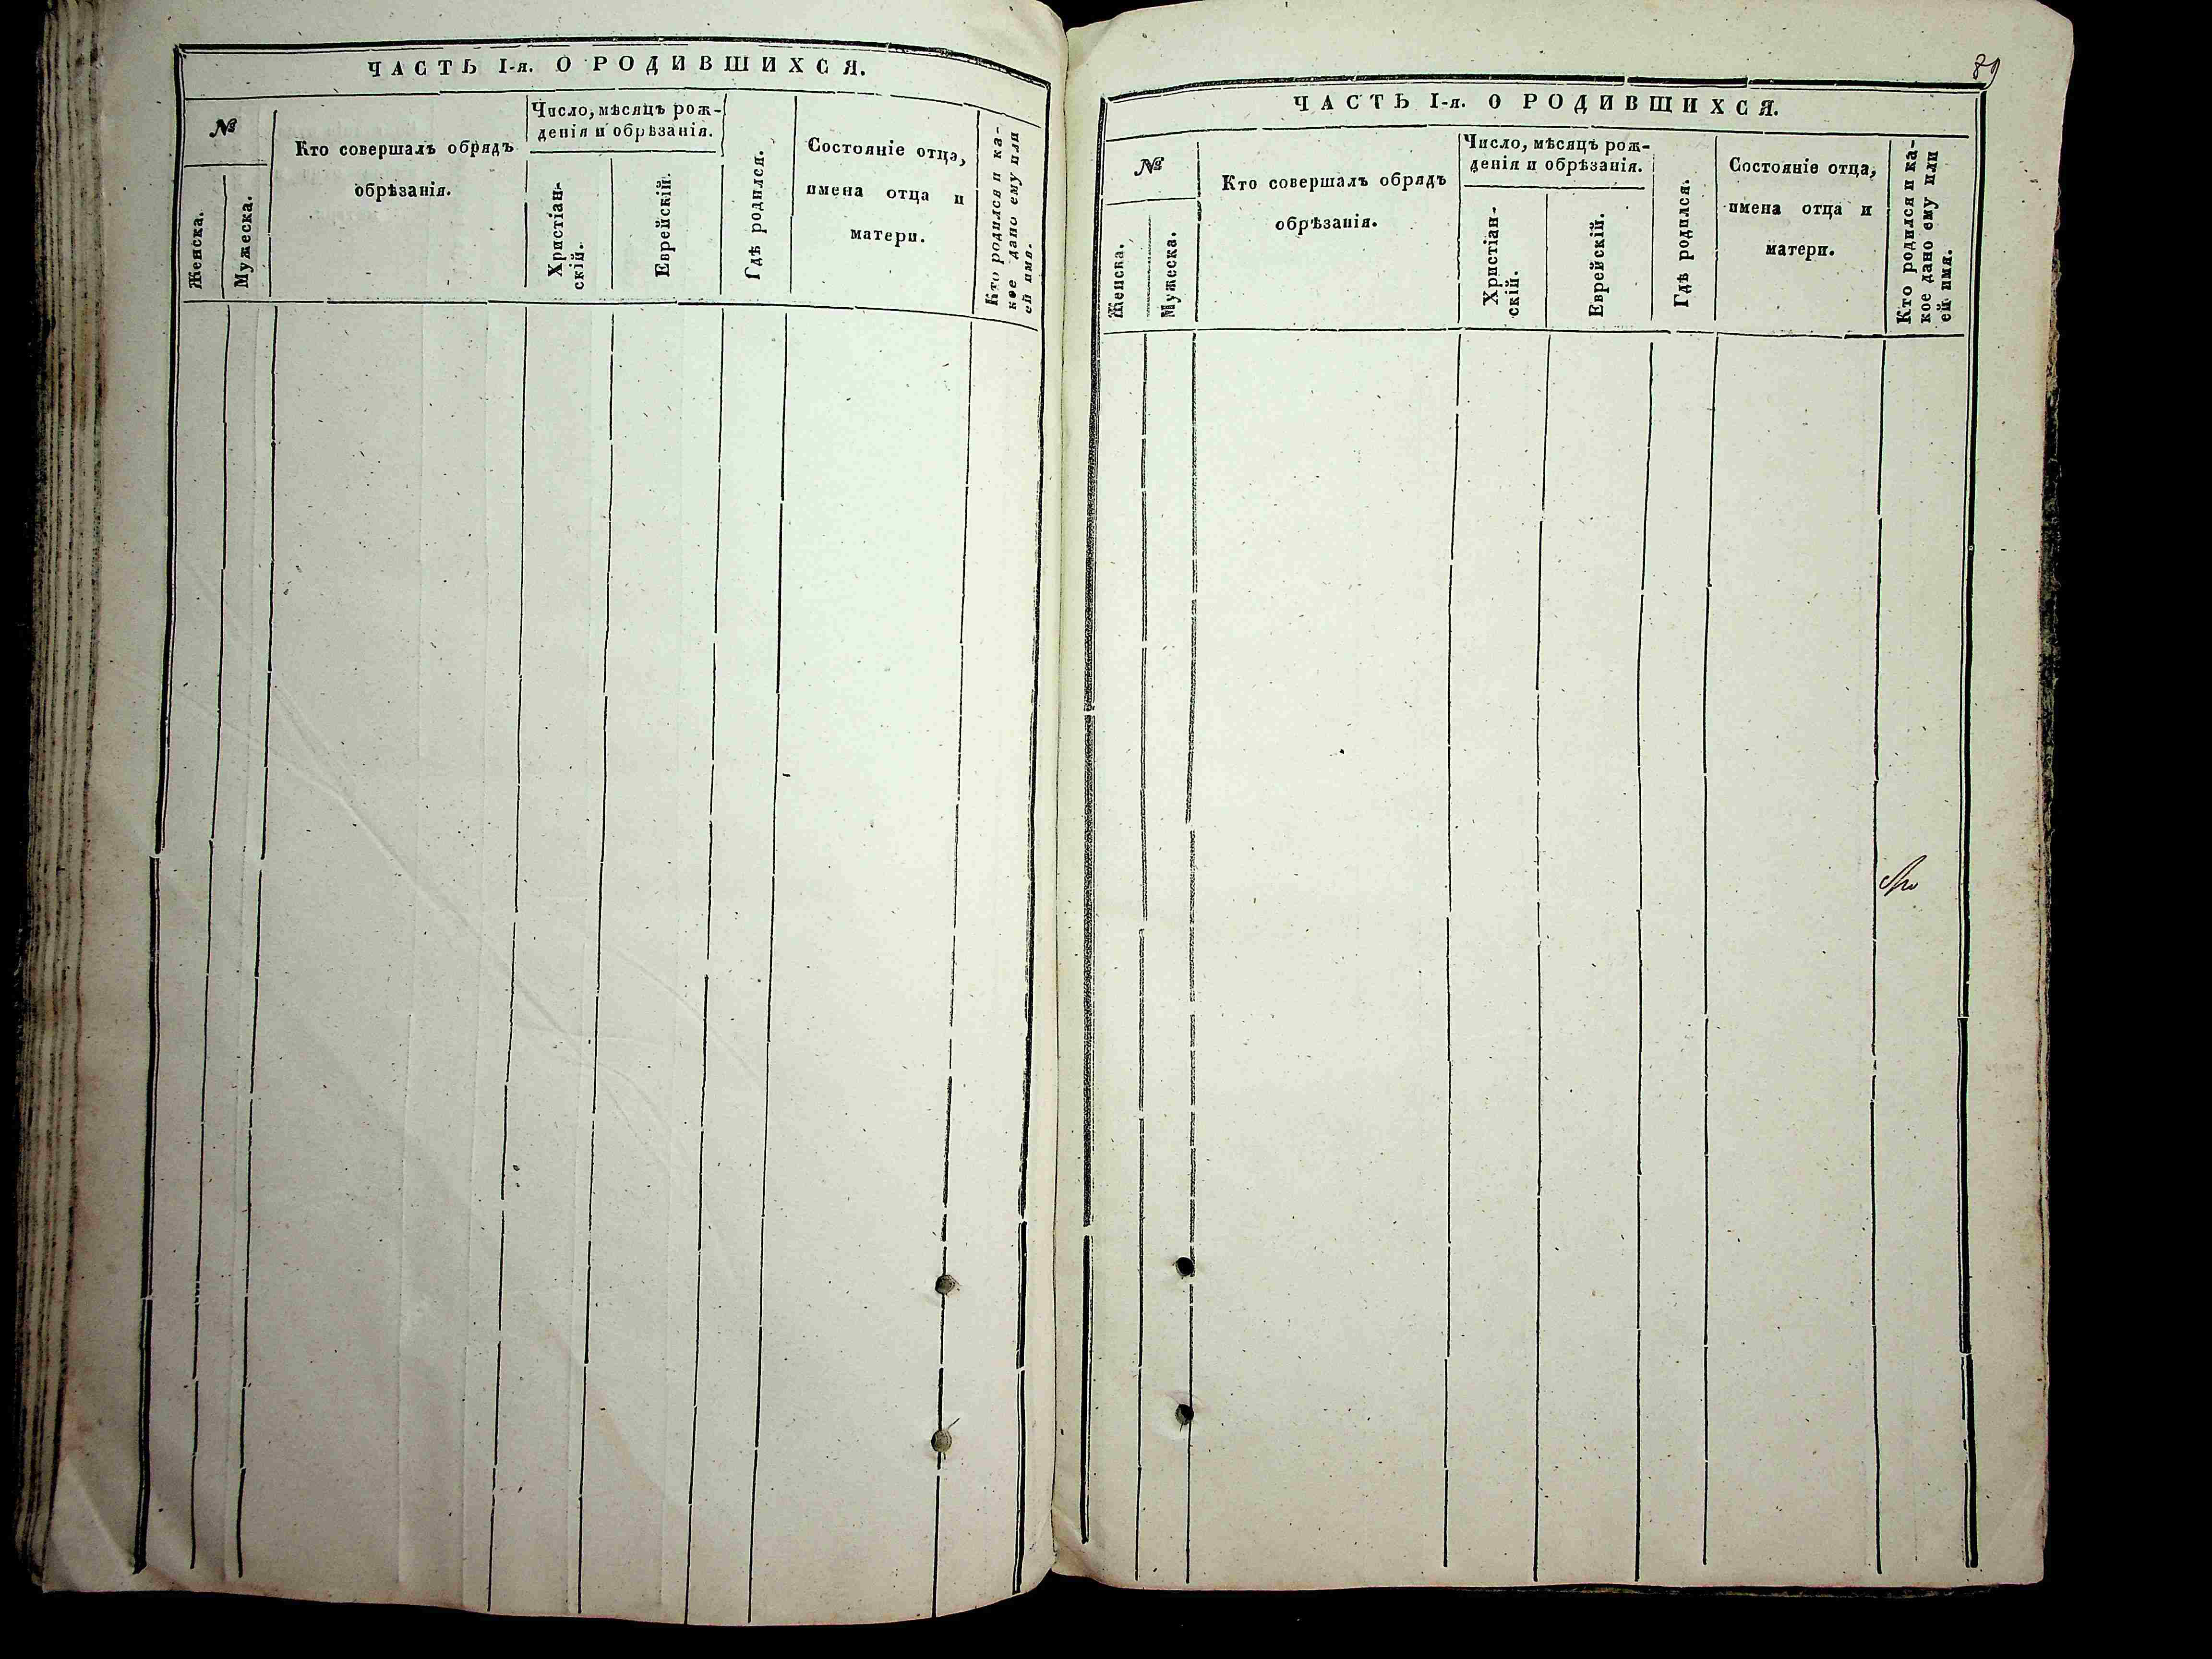 ЧАСТЬ I-я. О РОДИВШИХСЯ.
№
Женска.
Мужеска.
Кто совершалъ обрядъ
обрѣзанія.
Число, мѣсяцъ рож-
денія и обрѣзанія.
Христіан-
скій.
Еврейскій.
Гдѣ родился.
Состояніе отца,
имена отца и
матери.
Кто родился и ка-
кое дано ему или
ей имя.
89
ЧАСТЬ I-я. О РОДИВШИХСЯ.
№
Женска.
Мужеска.
Кто совершалъ обрядъ
обрѣзанія.
Число, мѣсяцъ рож-
денія и обрѣзанія.
Христіан-
скій.
Еврейскій.
Гдѣ родился.
Состояніе отца,
имена отца и
матери.
Кто родился и ка-
кое дано ему или
ей имя.